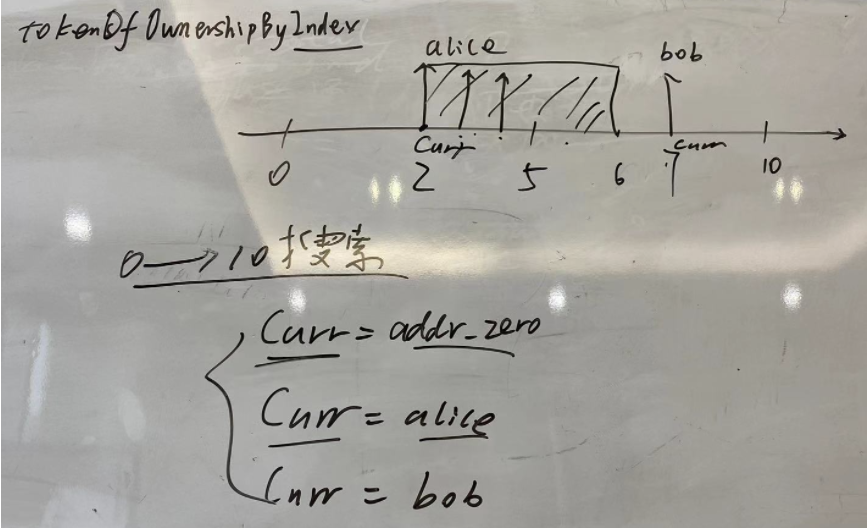 tokenOfOwnershipByIndex
alice
bob
Curr
Curr
0
2
5
6
7
10
0→10 搜索
Curr = addr_zero
Curr = alice
Curr = bob